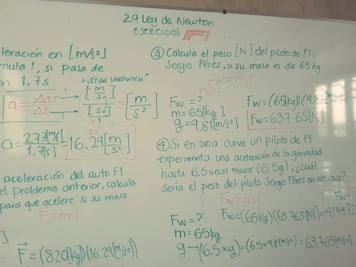 2ª Ley de Newton
EJERCICIOS
leración en [m/s²]
mula 1, si pasa de
n 1.7s
"LEY DEL SANDWICH"
a = Δv / Δt = [m/s] / [s] = [m/s²]
a = 27.7[m/s] / 1.7[s] = 16.29 [m/s²]
aceleración del auto F1
el problema anterior, calcula
para que acelere si su masa
F=ma
F⃗ = (820kg)(16.29[m/s²])
③ Calcula el peso [N] del piloto de F1,
Sergio Pérez, si su masa es de 65 kg
Fw = mg
Fw = ?
m = 65[kg]
g = 9.81[m/s²]
Fw = (65[kg])(9.81[m/s²])
Fw = 637.65[N]
④ Si en una curva un piloto de F1
experimenta una aceleración de la gravedad
hasta 6.5 veces mayor (6.5g), ¿cuál
sería el peso del piloto Sergio Pérez en ese caso?
Fw = mg
Fw = ?
m = 65kg
g → (6.5×g) = (6.5×9.81[m/s²]) = 63.765[m/s²]
Fw = (65kg)(63.765[N]) = 4144.72